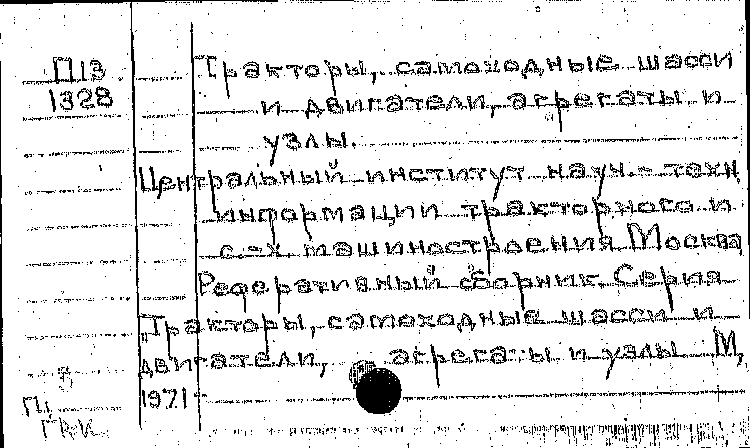 П13
1328
Тракторы, самоходные шасси
и двигатели, агрегаты и
узлы.
Центральный институт науч.- техн
информации тракторного и
с.-х. машиностроения Москва
Реферативный сборник. Серия
„Тракторы, самоходные шасси и
двигатели, агрегаты и узлы М,
1971-